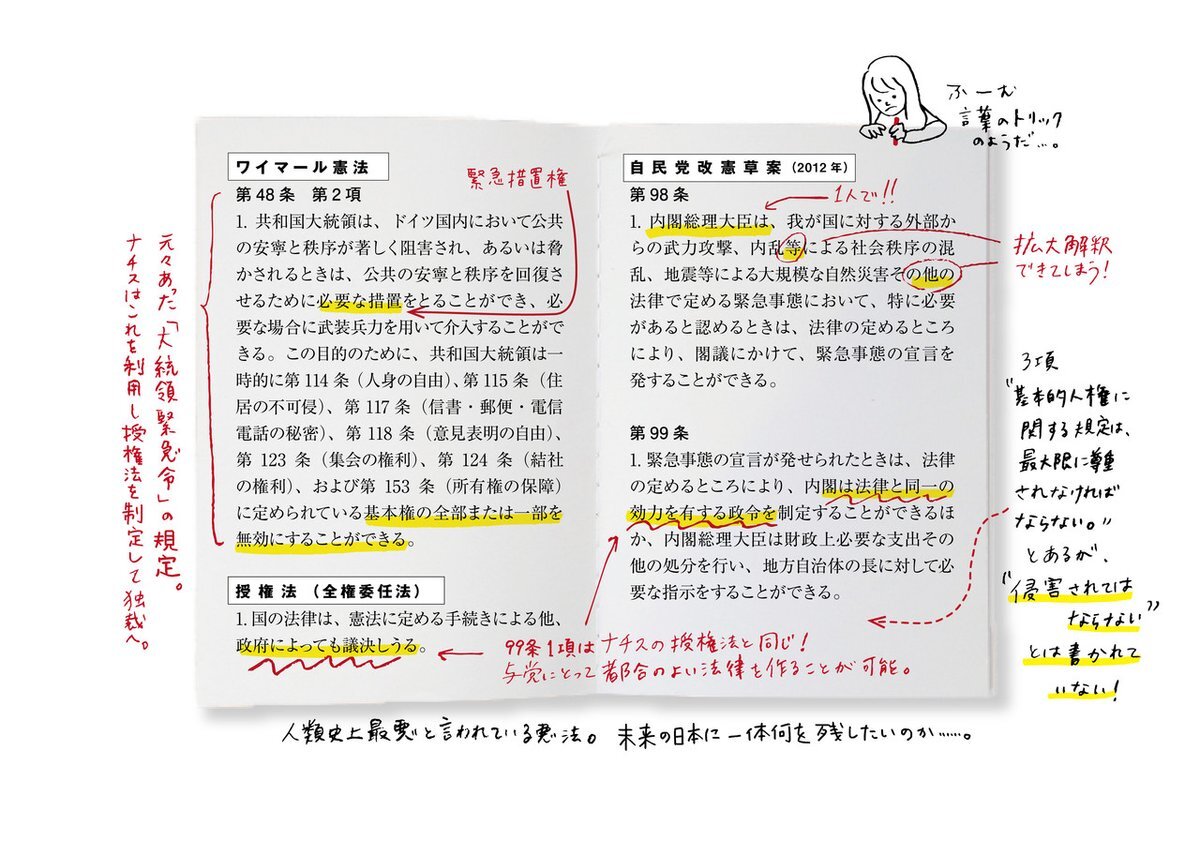 ふーむ
言葉のトリック
のようだ…。
ワイマール憲法
緊急措置権
第48条 第2項
1. 共和国大統領は、ドイツ国内において公共
の安寧と秩序が著しく阻害され、あるいは脅
かされるときは、公共の安寧と秩序を回復さ
せるために必要な措置をとることができ、必
要な場合に武装兵力を用いて介入することがで
きる。この目的のために、共和国大統領は一
時的に第114条（人身の自由）、第115条（住
居の不可侵）、第117条（信書・郵便・電信
電話の秘密）、第118条（意見表明の自由）、
第123条（集会の権利）、第124条（結社
の権利）、および第153条（所有権の保障）
に定められている基本権の全部または一部を
無効にすることができる。
元々あった「大統領緊急令」の規定。
ナチスはこれを利用し授権法を制定して独裁へ。
授権法（全権委任法）
1. 国の法律は、憲法に定める手続きによる他、
政府によっても議決しうる。
自民党改憲草案（2012年）
第98条
1人で!!
1. 内閣総理大臣は、我が国に対する外部か
らの武力攻撃、内乱等による社会秩序の混
乱、地震等による大規模な自然災害その他の
法律で定める緊急事態において、特に必要
があると認めるときは、法律の定めるところ
により、閣議にかけて、緊急事態の宣言を
発することができる。
拡大解釈
できてしまう!
第99条
1. 緊急事態の宣言が発せられたときは、法律
の定めるところにより、内閣は法律と同一の
効力を有する政令を制定することができるほ
か、内閣総理大臣は財政上必要な支出その
他の処分を行い、地方自治体の長に対して必
要な指示をすることができる。
3項
"基本的人権に
関する規定は、
最大限に尊重
されなければ
ならない。"
とあるが、
"侵害されては
ならない"
とは書かれて
いない!
99条1項はナチスの授権法と同じ!
与党にとって都合のよい法律を作ることが可能。
人類史上最悪と言われている悪法。 未来の日本に一体何を残したいのか……。